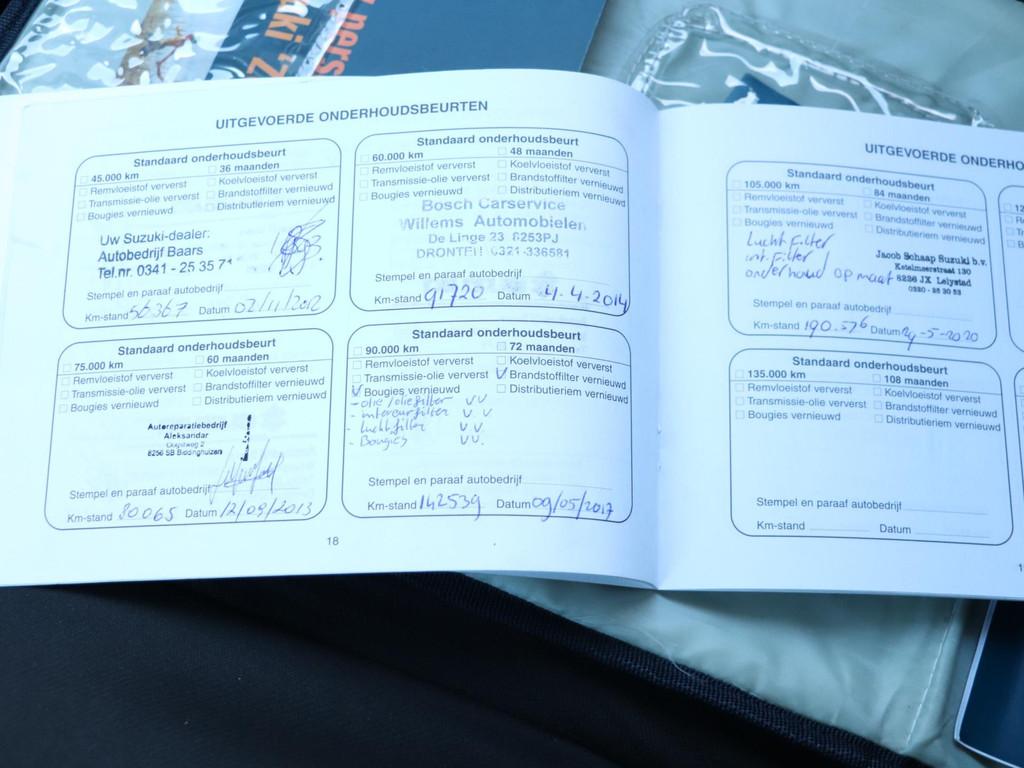 ners
ki 'Z
UITGEVOERDE ONDERHOUDSBEURTEN
Standaard onderhoudsbeurt
45.000 km 36 maanden
Remvloeistof ververst Koelvloeistof ververst
Transmissie-olie ververst Brandstoffilter vernieuwd
Bougies vernieuwd Distributieriem vernieuwd
Uw Suzuki-dealer:
Autobedrijf Baars
Tel.nr. 0341 - 25 35 7
Stempel en paraaf autobedrijf
Km-stand 56367 Datum 02/11/2012
Standaard onderhoudsbeurt
60.000 km 48 maanden
Remvloeistof ververst Koelvloeistof ververst
Transmissie-olie ververst Brandstoffilter vernieuwd
Bougies vernieuwd Distributieriem vernieuwd
Bosch Carservice
Willems Automobielen
De Linge 23 8253PJ
DRONTEN 0321-336581
Stempel en paraaf autobedrijf
Km-stand 91720 Datum 4-4-2014
Standaard onderhoudsbeurt
75.000 km 60 maanden
Remvloeistof ververst Koelvloeistof ververst
Transmissie-olie ververst Brandstoffilter vernieuwd
Bougies vernieuwd Distributieriem vernieuwd
Autoreparatiebedrijf
Aleksandar
8256 SB Biddinghuizen
Stempel en paraaf autobedrijf
Km-stand 80065 Datum 12/09/2013
Standaard onderhoudsbeurt
90.000 km 72 maanden
Remvloeistof ververst Koelvloeistof ververst
Transmissie-olie ververst V Brandstoffilter vernieuwd
V Bougies vernieuwd Distributieriem vernieuwd
- olie/oliefilter V V
- interieurfilter V V
- luchtfilter V V
- Bougies V V.
Stempel en paraaf autobedrijf
Km-stand 142539 Datum 09/05/2017
18
UITGEVOERDE ONDERHO
Standaard onderhoudsbeurt
105.000 km 84 maanden
Remvloeistof ververst Koelvloeistof ververst
Transmissie-olie ververst Brandstoffilter vernieuwd
Bougies vernieuwd Distributieriem vernieuwd
Lucht filter
int. Filter
onderhoud op maat
Jacob Schaap Suzuki b.v.
Ketelmeerstraat 130
8226 JX Lelystad
0320 - 25 30 53
Stempel en paraaf autobedrijf
Km-stand 190.576 Datum 29-5-2020
Standaard onderhoudsbeurt
135.000 km 108 maanden
Remvloeistof ververst Koelvloeistof ververst
Transmissie-olie ververst Brandstoffilter vernieuwd
Bougies vernieuwd Distributieriem vernieuwd
Stempel en paraaf autobedrijf
Km-stand Datum